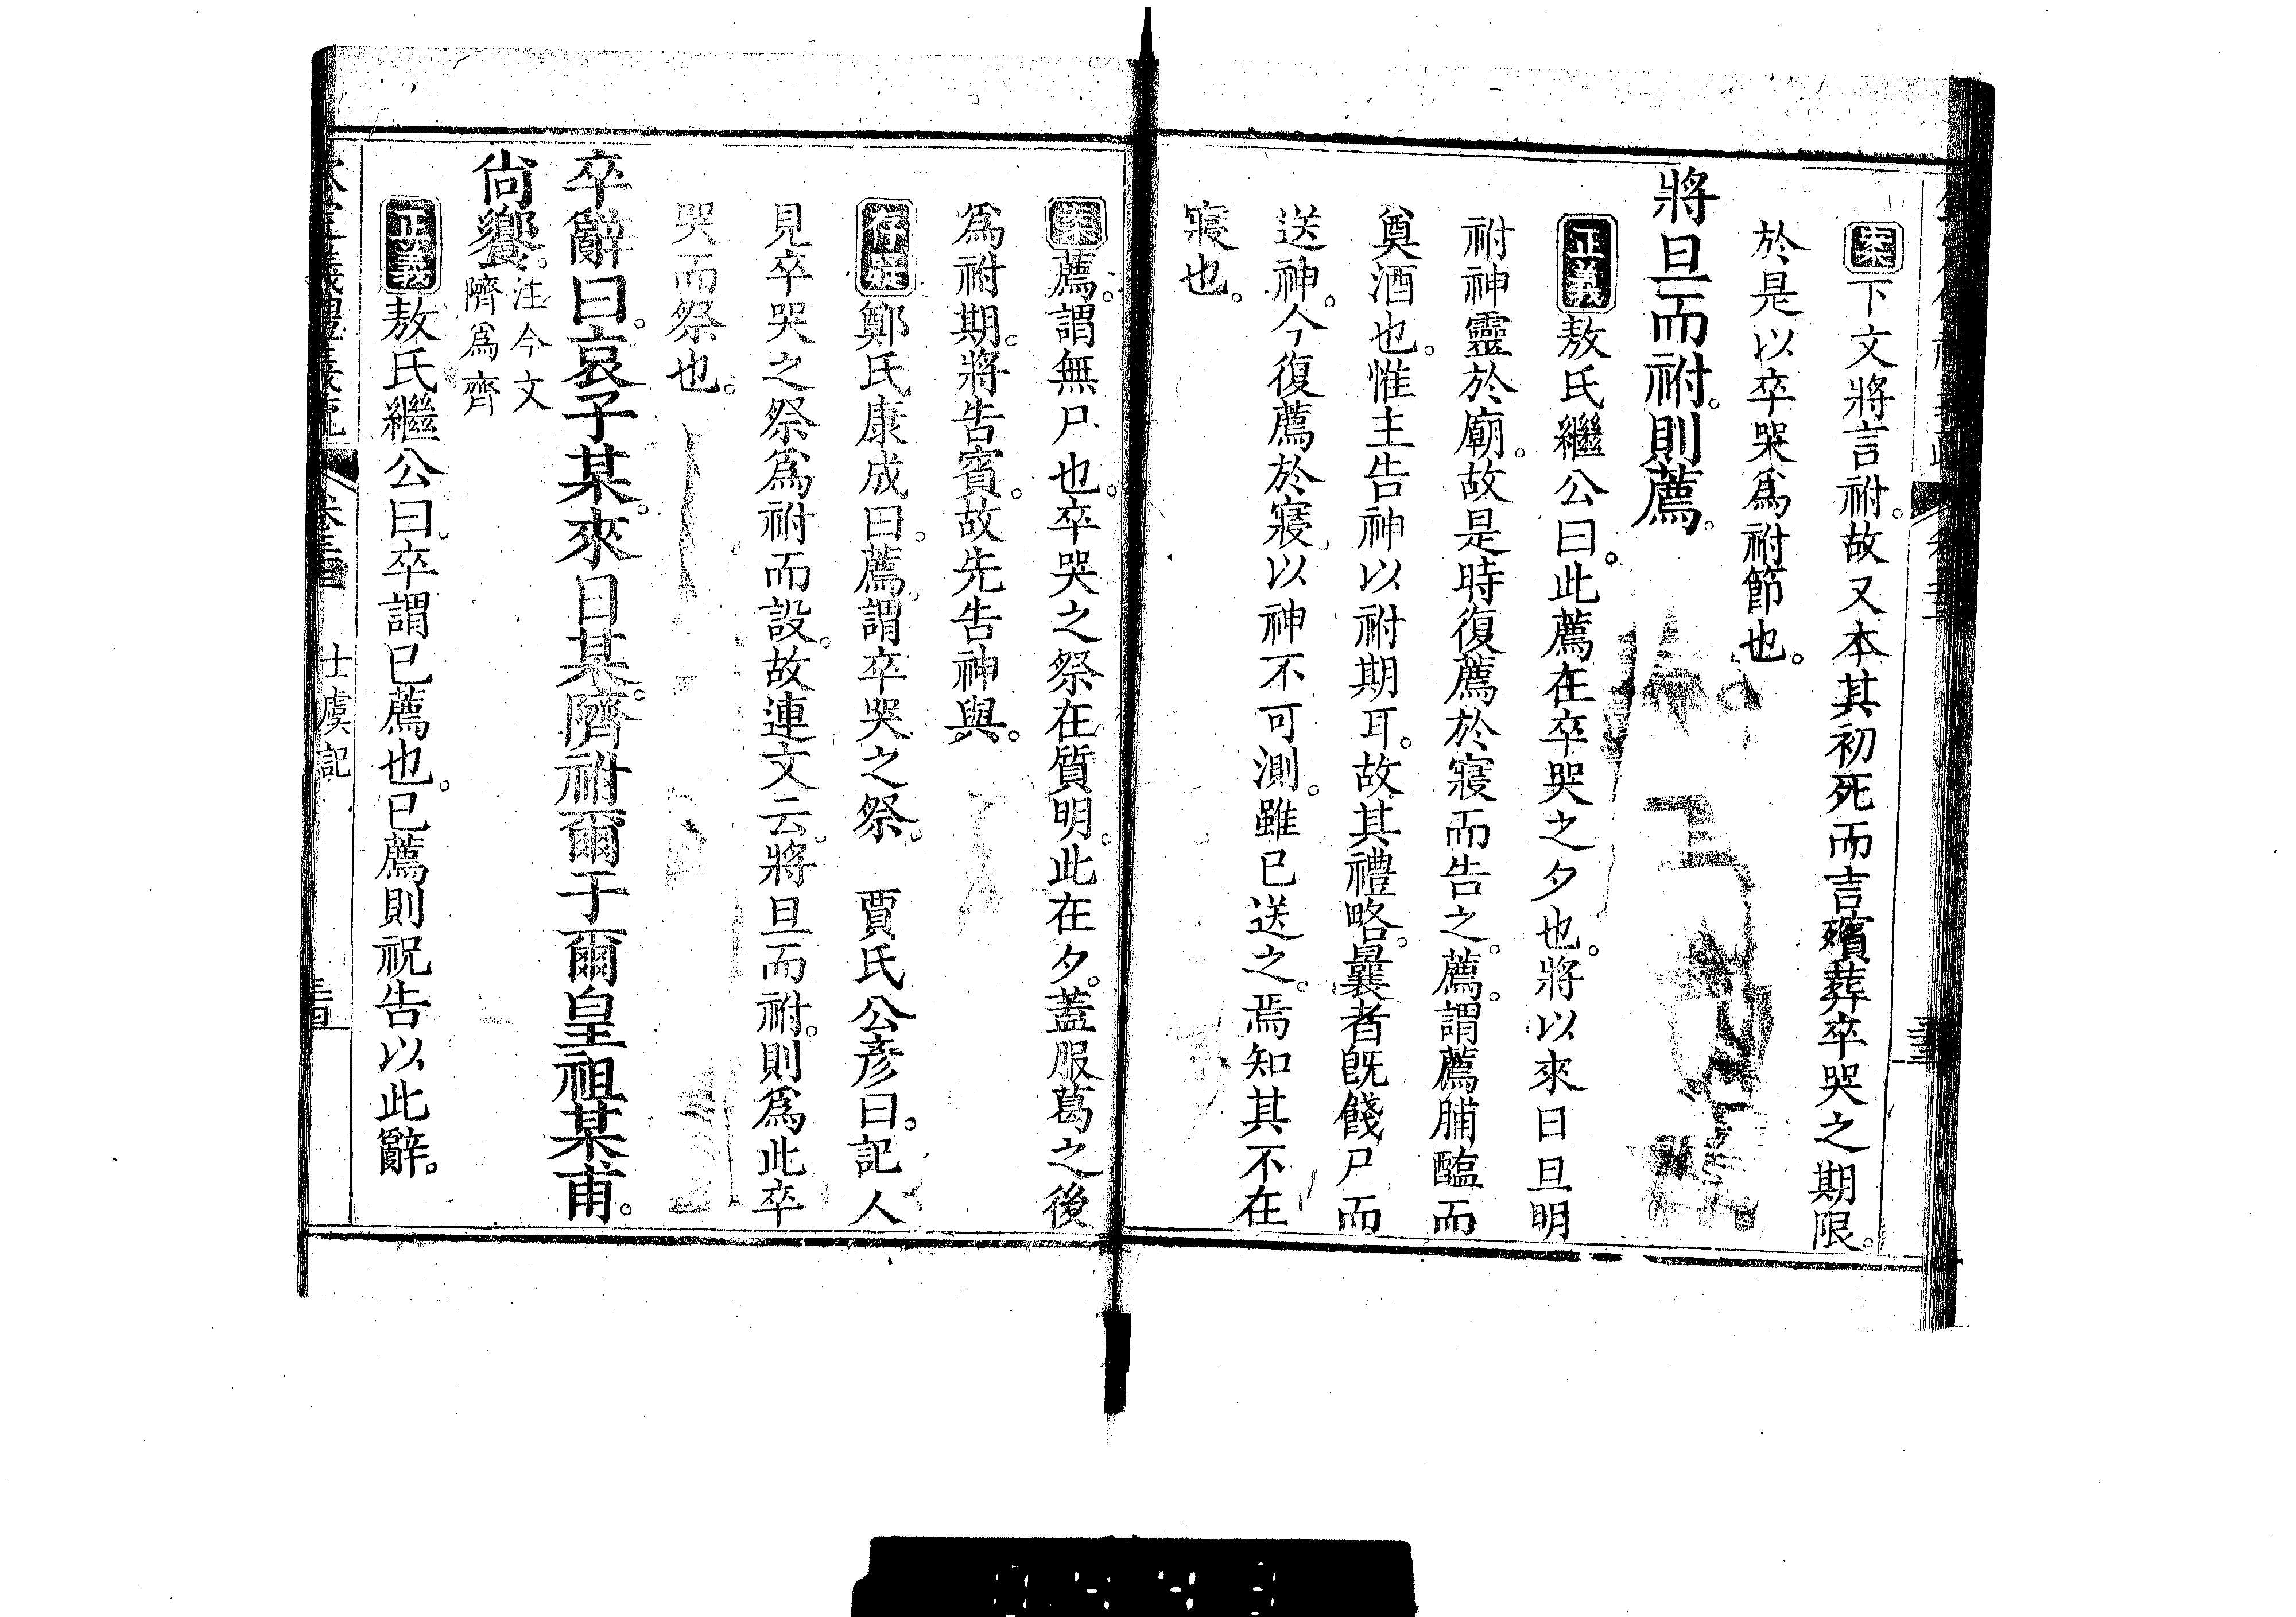 案下文將言祔。故又本其初死而言殯葬卒哭之期限。
於是以卒哭爲祔節也。
將旦而祔。則薦。
正義敖氏繼公曰。此薦在卒哭之夕也。將以來日旦明
祔神靈於廟。故是時復薦於寢而告之。薦。謂薦脯醢而
奠酒也。惟主告神以祔期耳。故其禮略。曩者旣餞尸而
送神。今復薦於寢。以神不可測。雖已送之。焉知其不在
寢也。
案薦。謂無尸也。卒哭之祭在質明。此在夕。蓋服葛之後
爲祔期。將告賓。故先告神與。
存疑鄭氏康成曰。薦。謂卒哭之祭。 賈氏公彥曰。記人
見卒哭之祭爲祔而設。故連文云。將旦而祔。則爲此卒
哭而祭也。
卒辭曰。哀子某。來日某。隮祔爾于爾皇祖某甫。
尙饗。注今文
隮爲齊
正義敖氏繼公曰。卒謂已薦也。已薦則祝告以此辭。
士虞記